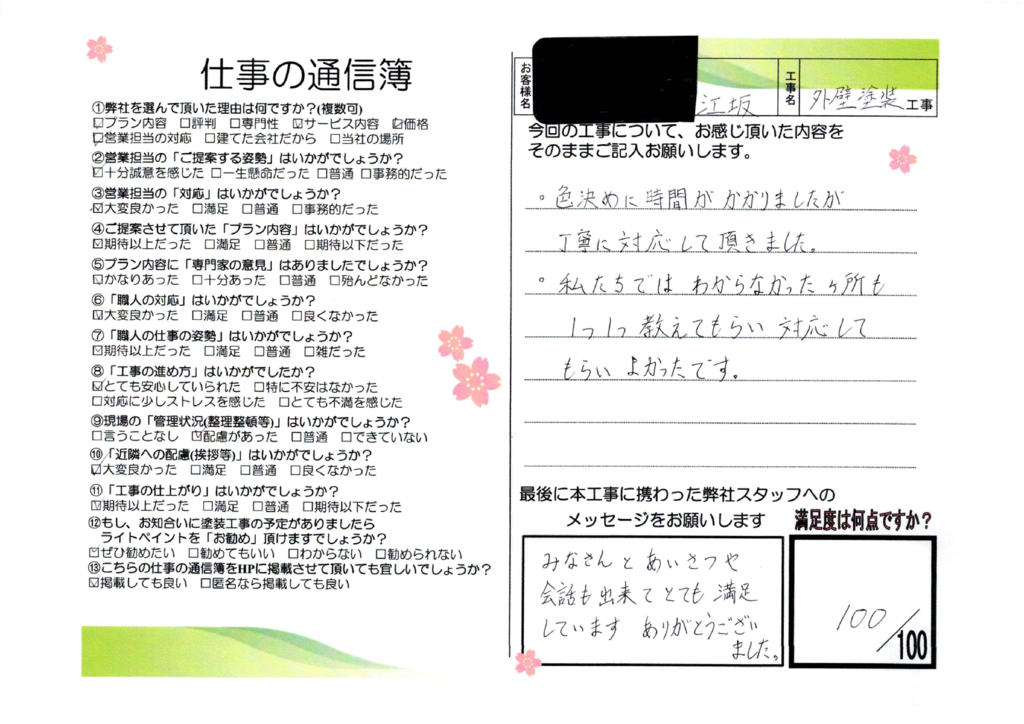 仕事の通信簿
①弊社を選んで頂いた理由は何ですか?(複数可)
☑プラン内容 □評判 □専門性 ☑サービス内容 ☑価格
☑営業担当の対応 □建てた会社だから □当社の場所
②営業担当の「ご提案する姿勢」はいかがでしょうか?
☑十分誠意を感じた □一生懸命だった □普通 □事務的だった
③営業担当の「対応」はいかがでしょうか?
☑大変良かった □満足 □普通 □事務的だった
④ご提案させて頂いた「プラン内容」はいかがでしょうか?
☑期待以上だった □満足 □普通 □期待以下だった
⑤プラン内容に「専門家の意見」はありましたでしょうか?
☑かなりあった □十分あった □普通 □殆んどなかった
⑥「職人の対応」はいかがでしょうか?
☑大変良かった □満足 □普通 □良くなかった
⑦「職人の仕事の姿勢」はいかがでしょうか?
☑期待以上だった □満足 □普通 □雑だった
⑧「工事の進め方」はいかがでしたか?
☑とても安心していられた □特に不安はなかった
□対応に少しストレスを感じた □とても不満を感じた
⑨現場の「管理状況(整理整頓等)」はいかがでしょうか?
□言うことなし ☑配慮があった □普通 □できていない
⑩「近隣への配慮(挨拶等)」はいかがでしょうか?
☑大変良かった □満足 □普通 □良くなかった
⑪「工事の仕上がり」はいかがでしょうか?
☑期待以上だった □満足 □普通 □期待以下だった
⑫もし、お知合いに塗装工事の予定がありましたら
ライトペイントを「お勧め」頂けますでしょうか?
☑ぜひ勧めたい □勧めてもいい □わからない □勧められない
⑬こちらの仕事の通信簿をHPに掲載させて頂いても宜しいでしょうか?
☑掲載しても良い □匿名なら掲載しても良い
お客様名 江坂 工事名 外壁塗装工事
今回の工事について、お感じ頂いた内容を
そのままご記入お願いします。
・色決めに時間がかかりましたが
丁寧に対応して頂きました。
・私たちでは わからなかったヶ所も
1つ1つ教えてもらい 対応して
もらい よかったです。
最後に本工事に携わった弊社スタッフへの
メッセージをお願いします
みなさんと あいさつや
会話も出来て とても 満足
しています ありがとうござい
ました。
満足度は何点ですか?
100/100